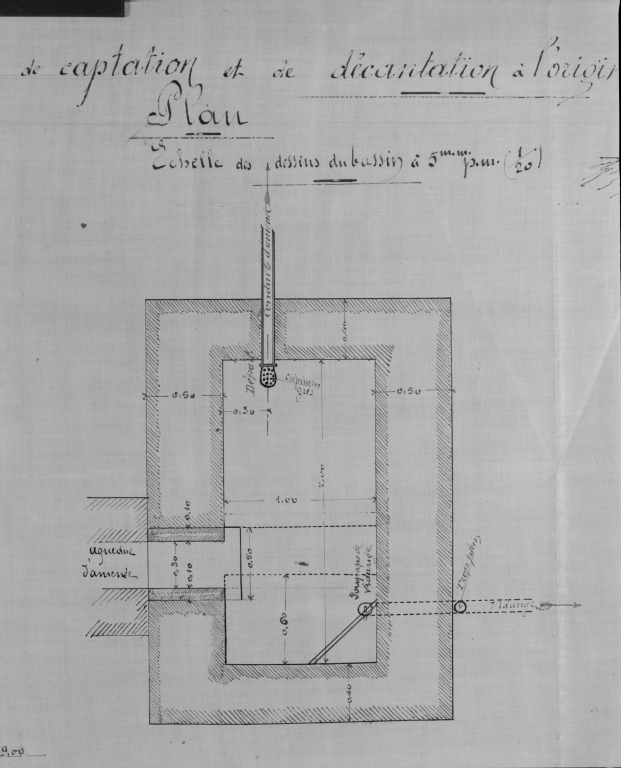 de captation et de décantation à l'origin
Plan
Echelle des dessins du bassin à 5 m.m. p.m. (1/20)
Conduite d'amenée
0,40
Départ
0,50
0,30
0,50
2,00
1,00
0,10
aqueduc
d'amenée
0,30
0,10
0,50
0,60
Soupape de
Vidange
Trop plein
Vidange
0,40
9,00